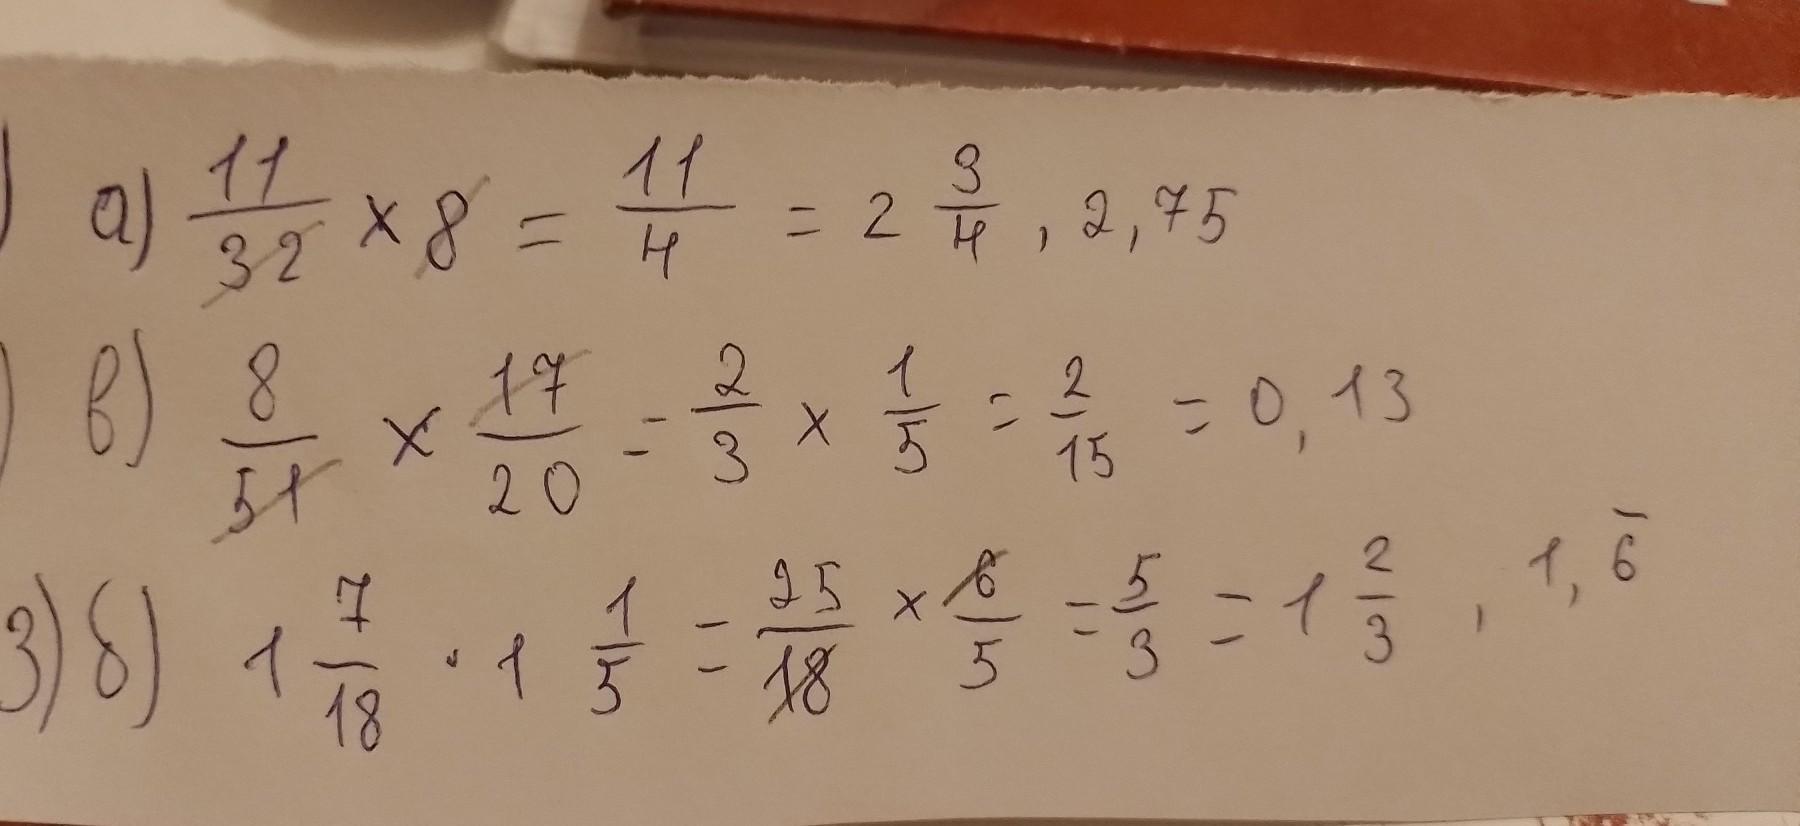 ) а) 11/32 × 8 = 11/4 = 2 3/4 , 2,75
) в) 8/51 × 17/20 = 2/3 × 1/5 = 2/15 = 0,13
3) б) 1 7/18 · 1 1/5 = 25/18 × 6/5 = 5/3 = 1 2/3 , 1,6̅